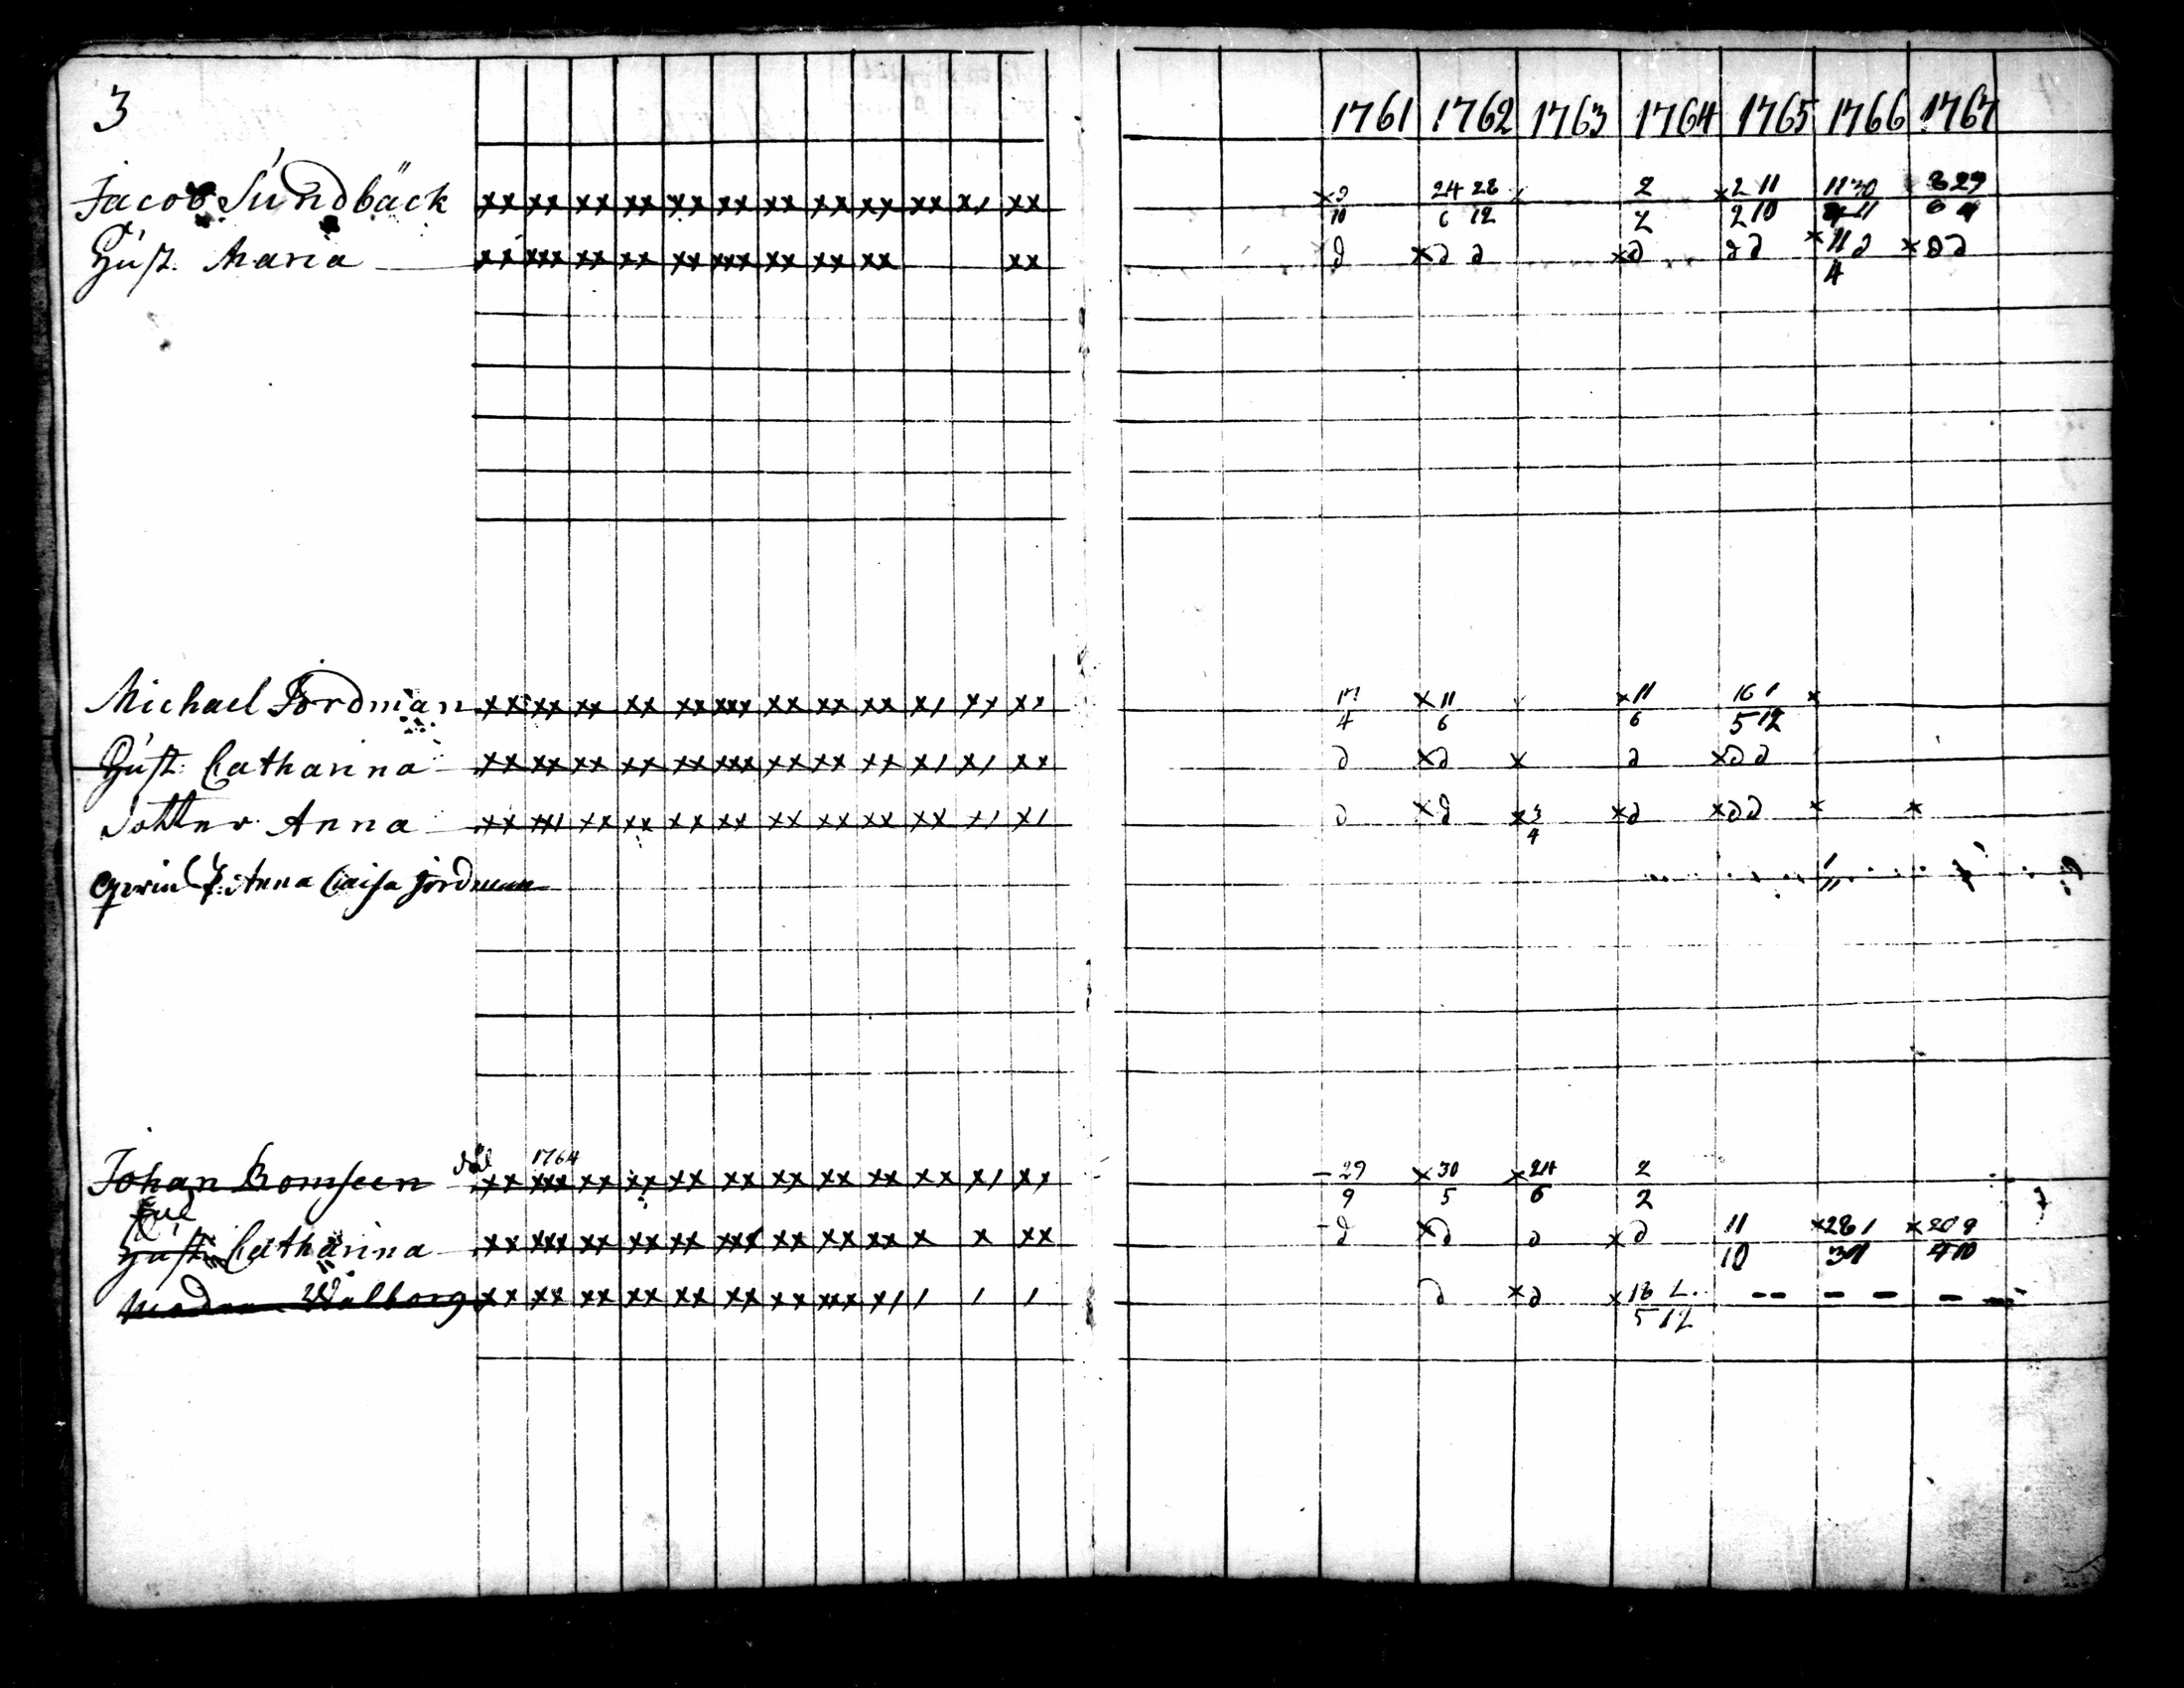 3
1761 1762 1763 1764 1765 1766 1767
Jacob Sundbäck xx xx xx xx xx xx xx xx xx xx x/ xx x 9/10 24/6 28/12 x 2/2 x 2/2 11/10 11 30 3 29
Hust: Maria xx xxx xx xx xx xxx xx xx xx xx d x d d x d d d x 11/4 d x d d
Michael Jordman xx xx xx xx xx xxx xx xx xx x/ xx xx 17/4 x 11/6 x 11/6 16/5 1/12 x
Hust: Catharina xx xx xx xx xx xxx xx xx xx x/ x/ xx d x d x d x d d
Dotter Anna xx xx/ xx xx xx xx xx xx xx xx x/ x/ d x d x 3/4 x d x d d x x
Anna Caisa Jordman
1764
Johan Bomseen xx xxx xx xx xx xx xx xx xx xx x/ xx - 29/9 x 30/5 x 24/6 2/2
Enk
Hust: Catharina xx xxx xx xx xx xxx xx xx xx x x xx - d x d d x d 11/10 x 28/3 1/11 x 20/4 9/10
Walborg xx xx xx xx xx xx xx xxx x/ / / / d x d x 18/5 12 -- - - - -